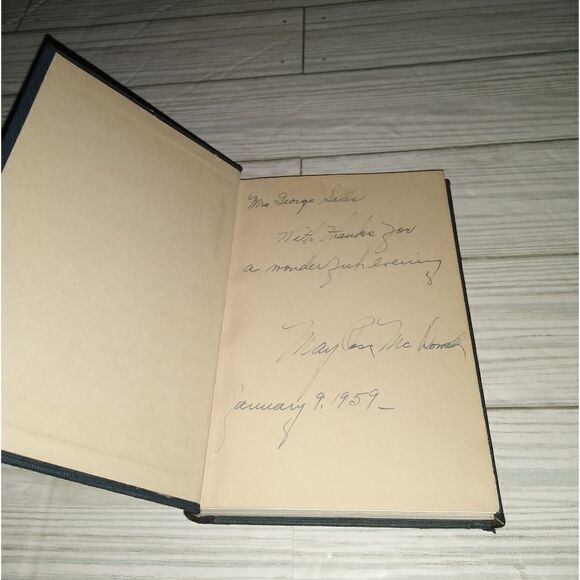 Mrs. George Sells
With Thanks for
a wonderful evening
May Ross McDowell
January 9, 1959